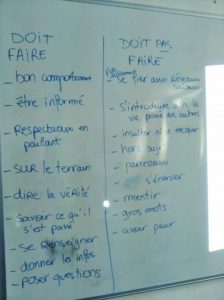 DOIT
FAIRE
- bon comportement
- être informé
- Respectueux en
parlant
- SUR le terrain
- dire la vérité
- savoir ce qu'il
s'est passé
- se renseigner
- donner les infos
- poser questions
DOIT PAS
FAIRE
- se fier aux Réseaux
sociaux
- S'introduire dans la
vie privée des autres
- insulter ni se moquer
- hors sujet
- paresseuse
- s'énerver
- mentir
- gros mots
- avoir peur